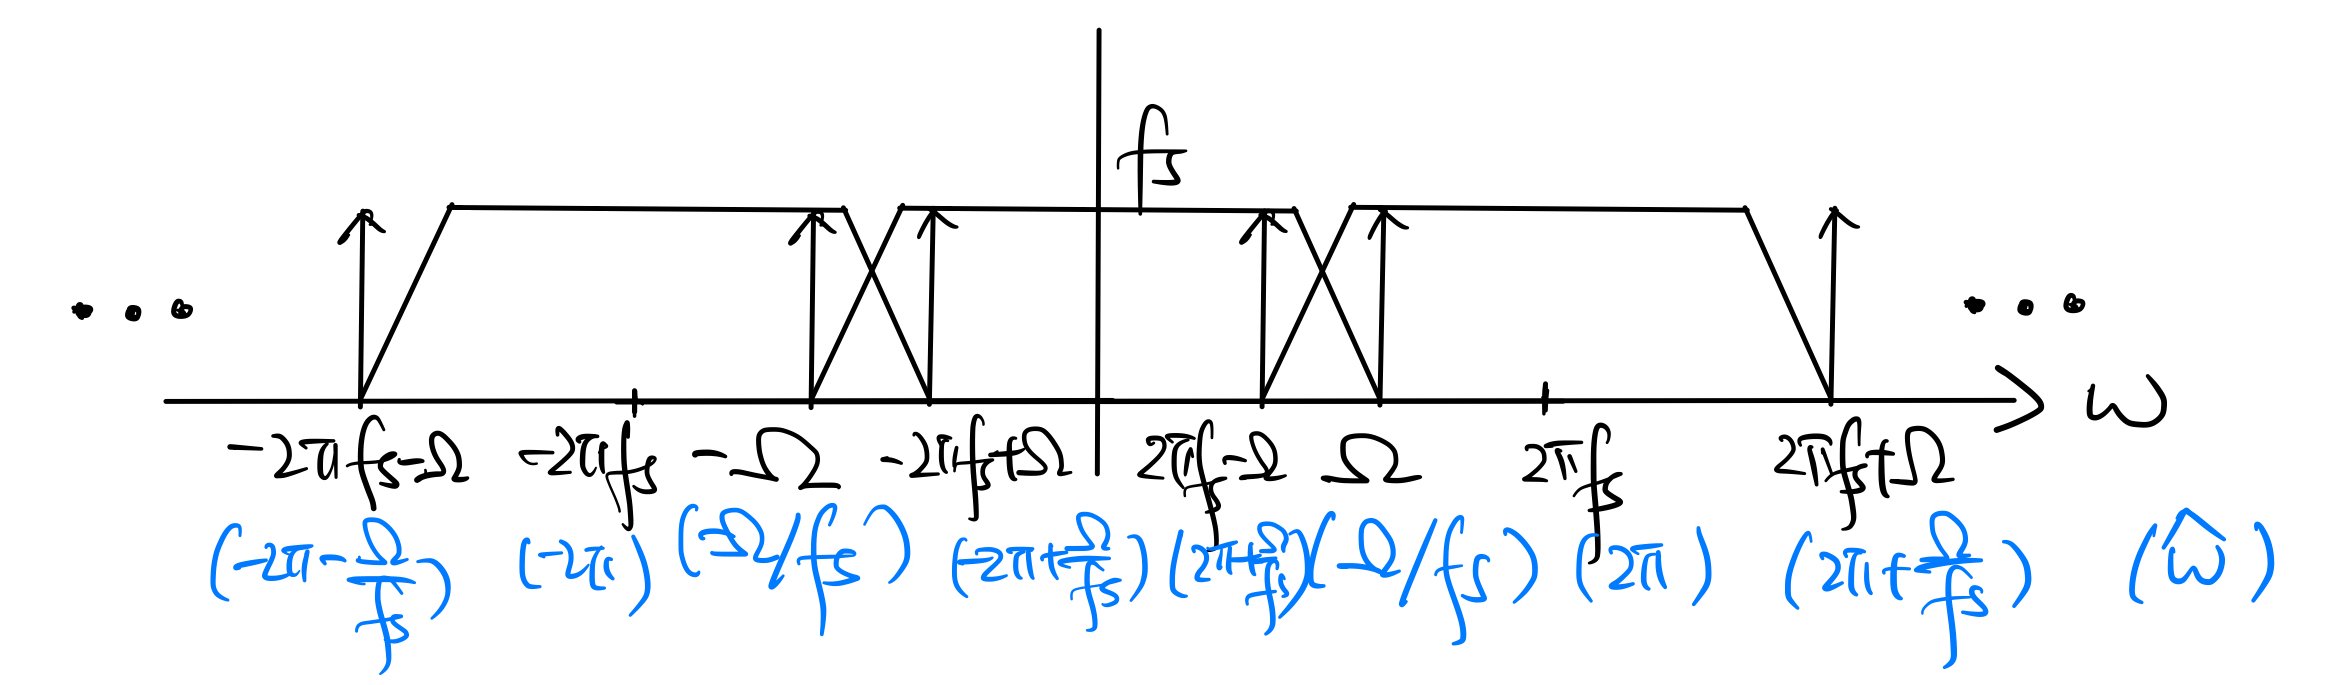 fs
-2πfs-Ω -2πfs -Ω -2πfs+Ω 2πfs-Ω Ω 2πfs 2πfs+Ω ω
(-2π-Ω/fs) (-2π) (-Ω/fs) (-2π+Ω/fs) (2π+Ω/fs) (Ω/fs) (2π) (2π+Ω/fs) (ω̂)